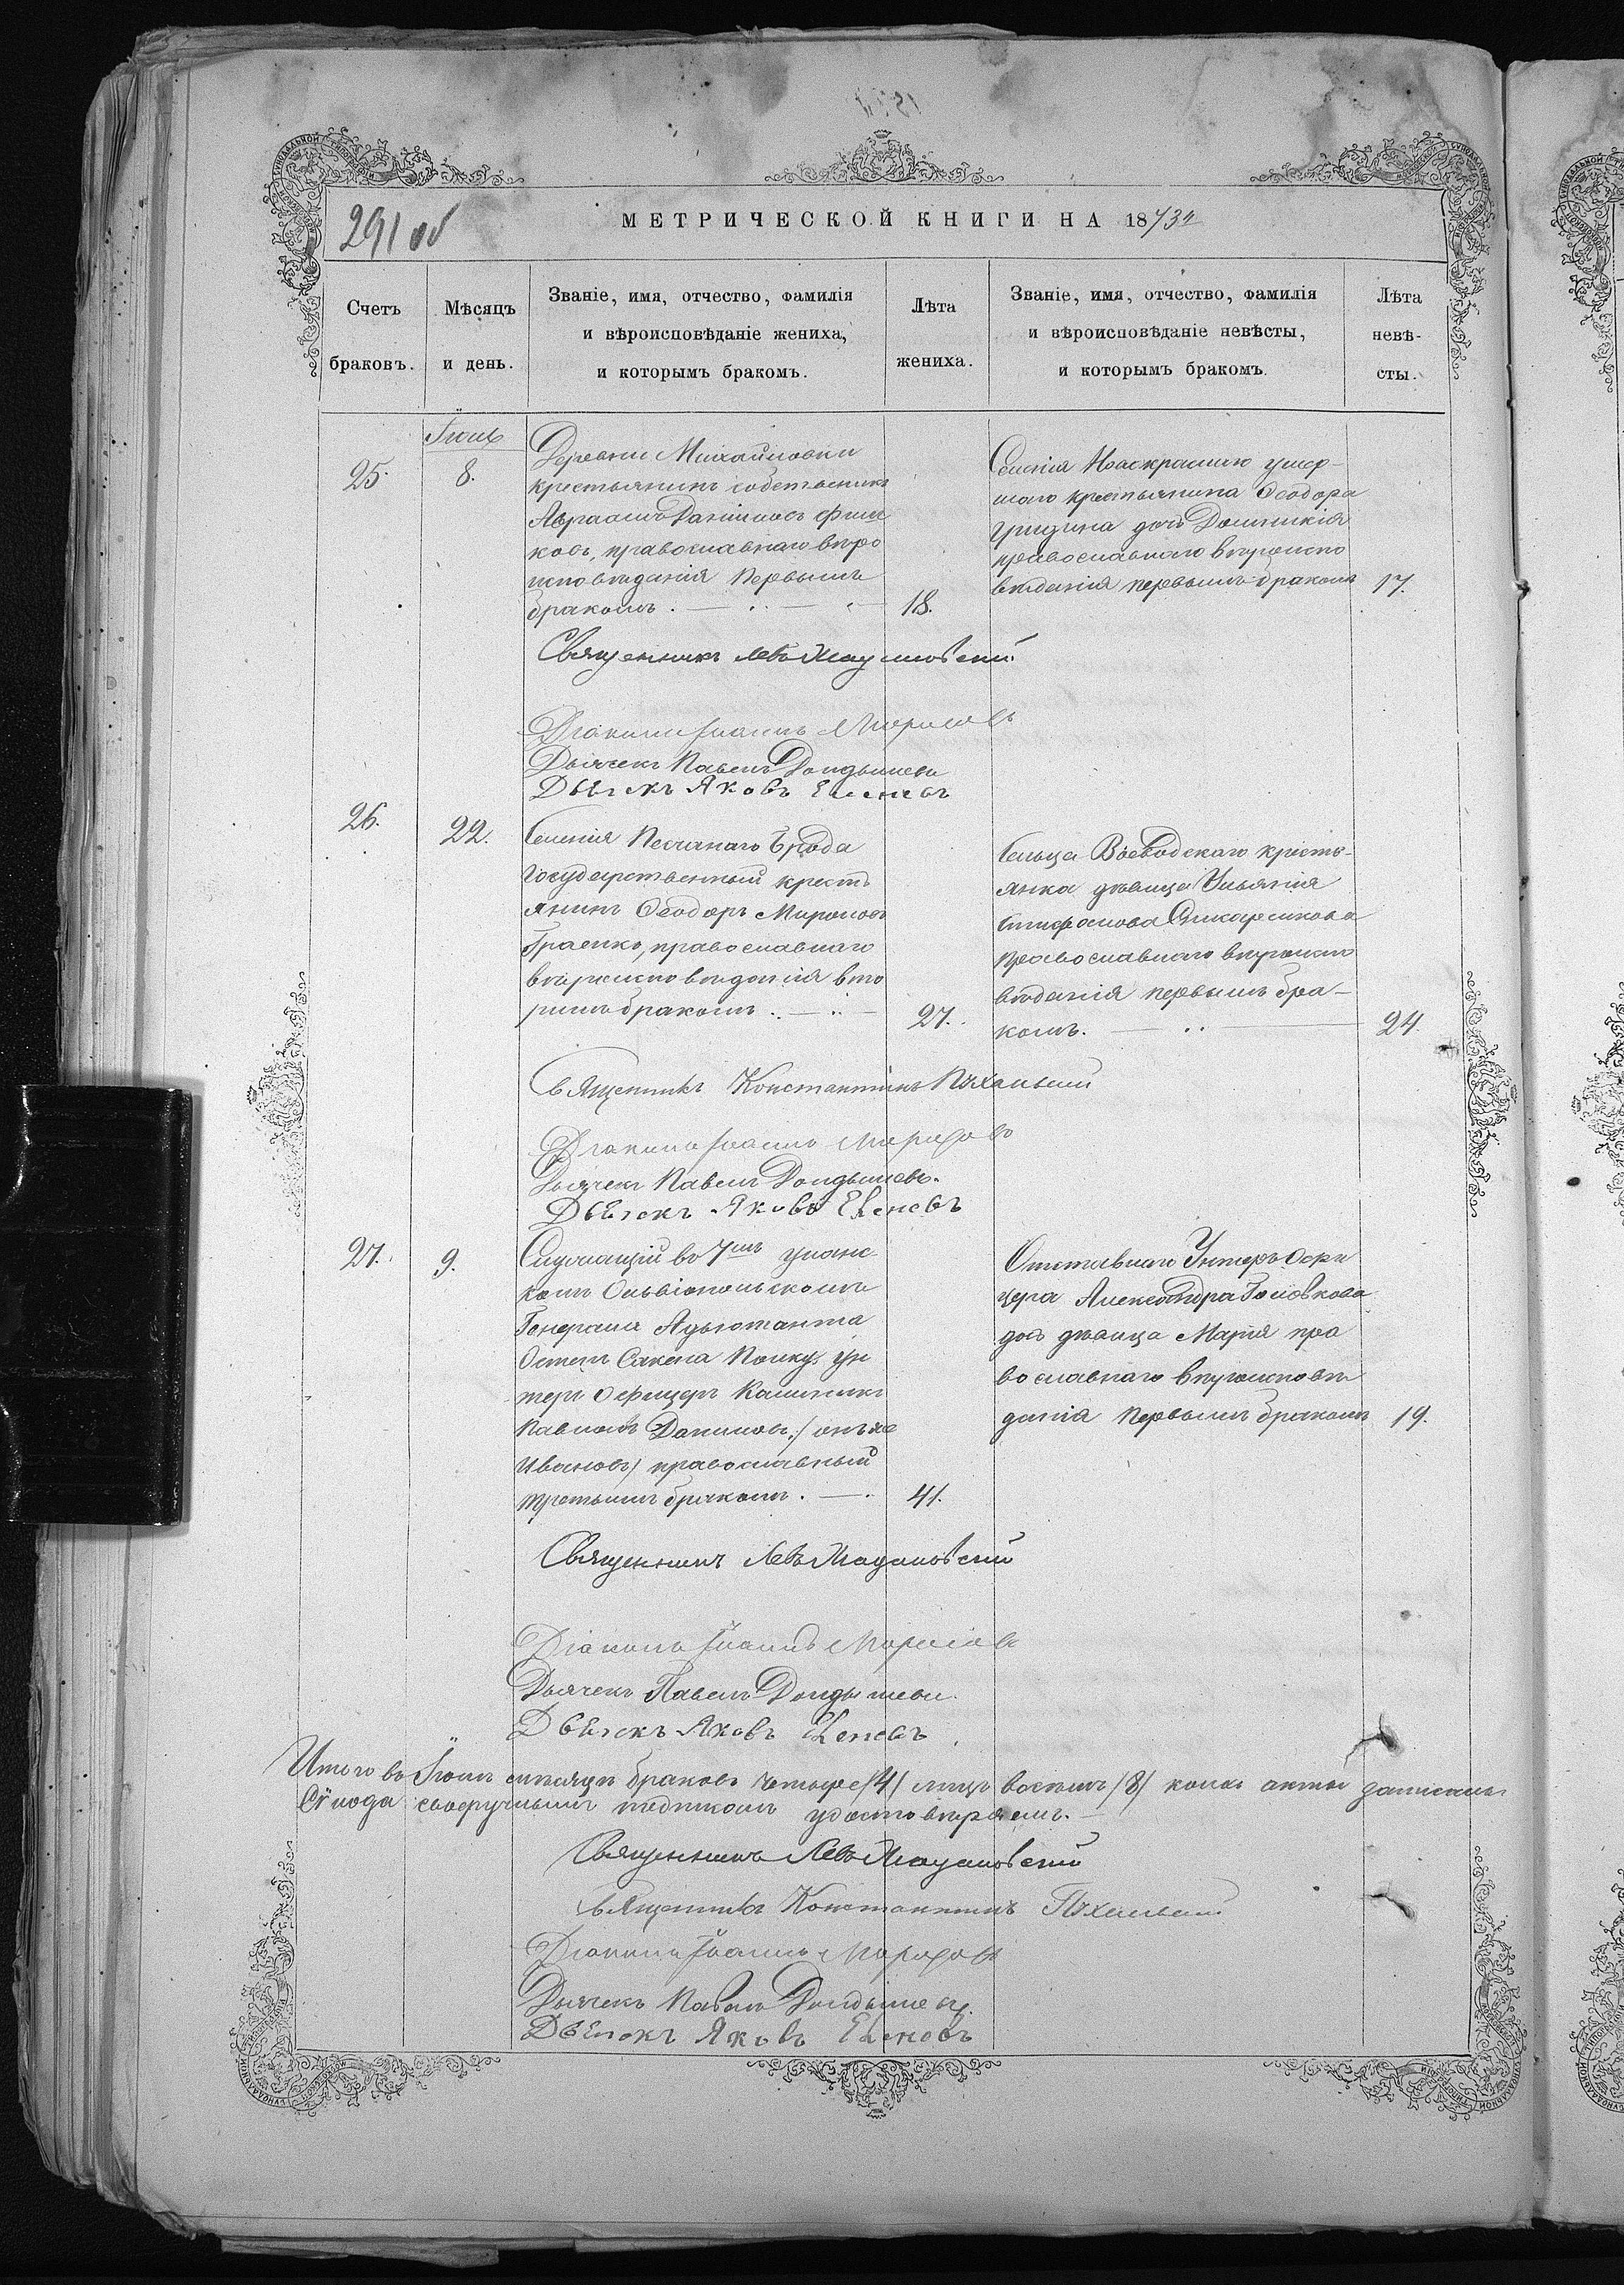 291 об
МЕТРИЧЕСКОЙ КНИГИ НА 1873 г
Счетъ браковъ.
Мѣсяцъ и день.
Званіе, имя, отчество, фамилія
и вѣроисповѣданіе жениха,
и которымъ бракомъ.
Лѣта жениха.
Званіе, имя, отчество, фамилія
и вѣроисповѣданіе невѣсты,
и которымъ бракомъ.
Лѣта невѣ-
сты.
Іюль
25.
8.
Деревни Михайловки
крестьянинъ собственникъ
Авраамъ Даніиловъ
ковъ, православнаго вѣро
исповѣданія первымъ
бракомъ.
18.
Селенія умер-
шаго крестьянина Ѳеодора
дочь Домникія
православнаго вѣроиспо
вѣданія первымъ бракомъ
17.
Священникъ Левъ
Діаконъ Іоаннъ
Дьячекъ Павелъ
Дьячекъ Яковъ
26.
22.
Селенія Песчанаго Брода
Государственный кресть
янинъ Ѳеодоръ Мироновъ
православнаго
вѣроисповѣданія вто
рымъ бракомъ
27.
Сельца Воеводскаго кресть-
янка дѣвица Ульянія
Стефанова
православнаго вѣроиспо
вѣданія первымъ бра-
комъ.
24.
Священникъ Константинъ
Діаконъ Іоаннъ
Дьячекъ Павелъ
Дьячекъ Яковъ
27.
9.
Служащій въ 7мъ улане-
комъ Ольвіопольскомъ
Генерала Адъютанта
Остенъ Сакена полку, ун
теръ Офицеръ Калиникъ
Павловъ Даниловъ / онъ же
Ивановъ / православный
третьимъ бракомъ.
41.
Отставнаго Унтеръ Офи
цера Александра Головкова
дочь дѣвица Марія пра
вославнаго вѣроисповѣ
данія первымъ бракомъ
19.
Священникъ Левъ
Діаконъ Іоаннъ
Дьячекъ Павелъ
Дьячекъ Яковъ
Итого въ Іюлѣ мѣсяцѣ браковъ четыре /4/ лицъ восемь /8/ коихъ акты записаны
своеручнымъ подписомъ удостовѣряемъ.
Священникъ Левъ
Священникъ Константинъ
Діаконъ Іоаннъ
Дьячекъ Павелъ
Дьячекъ Яковъ